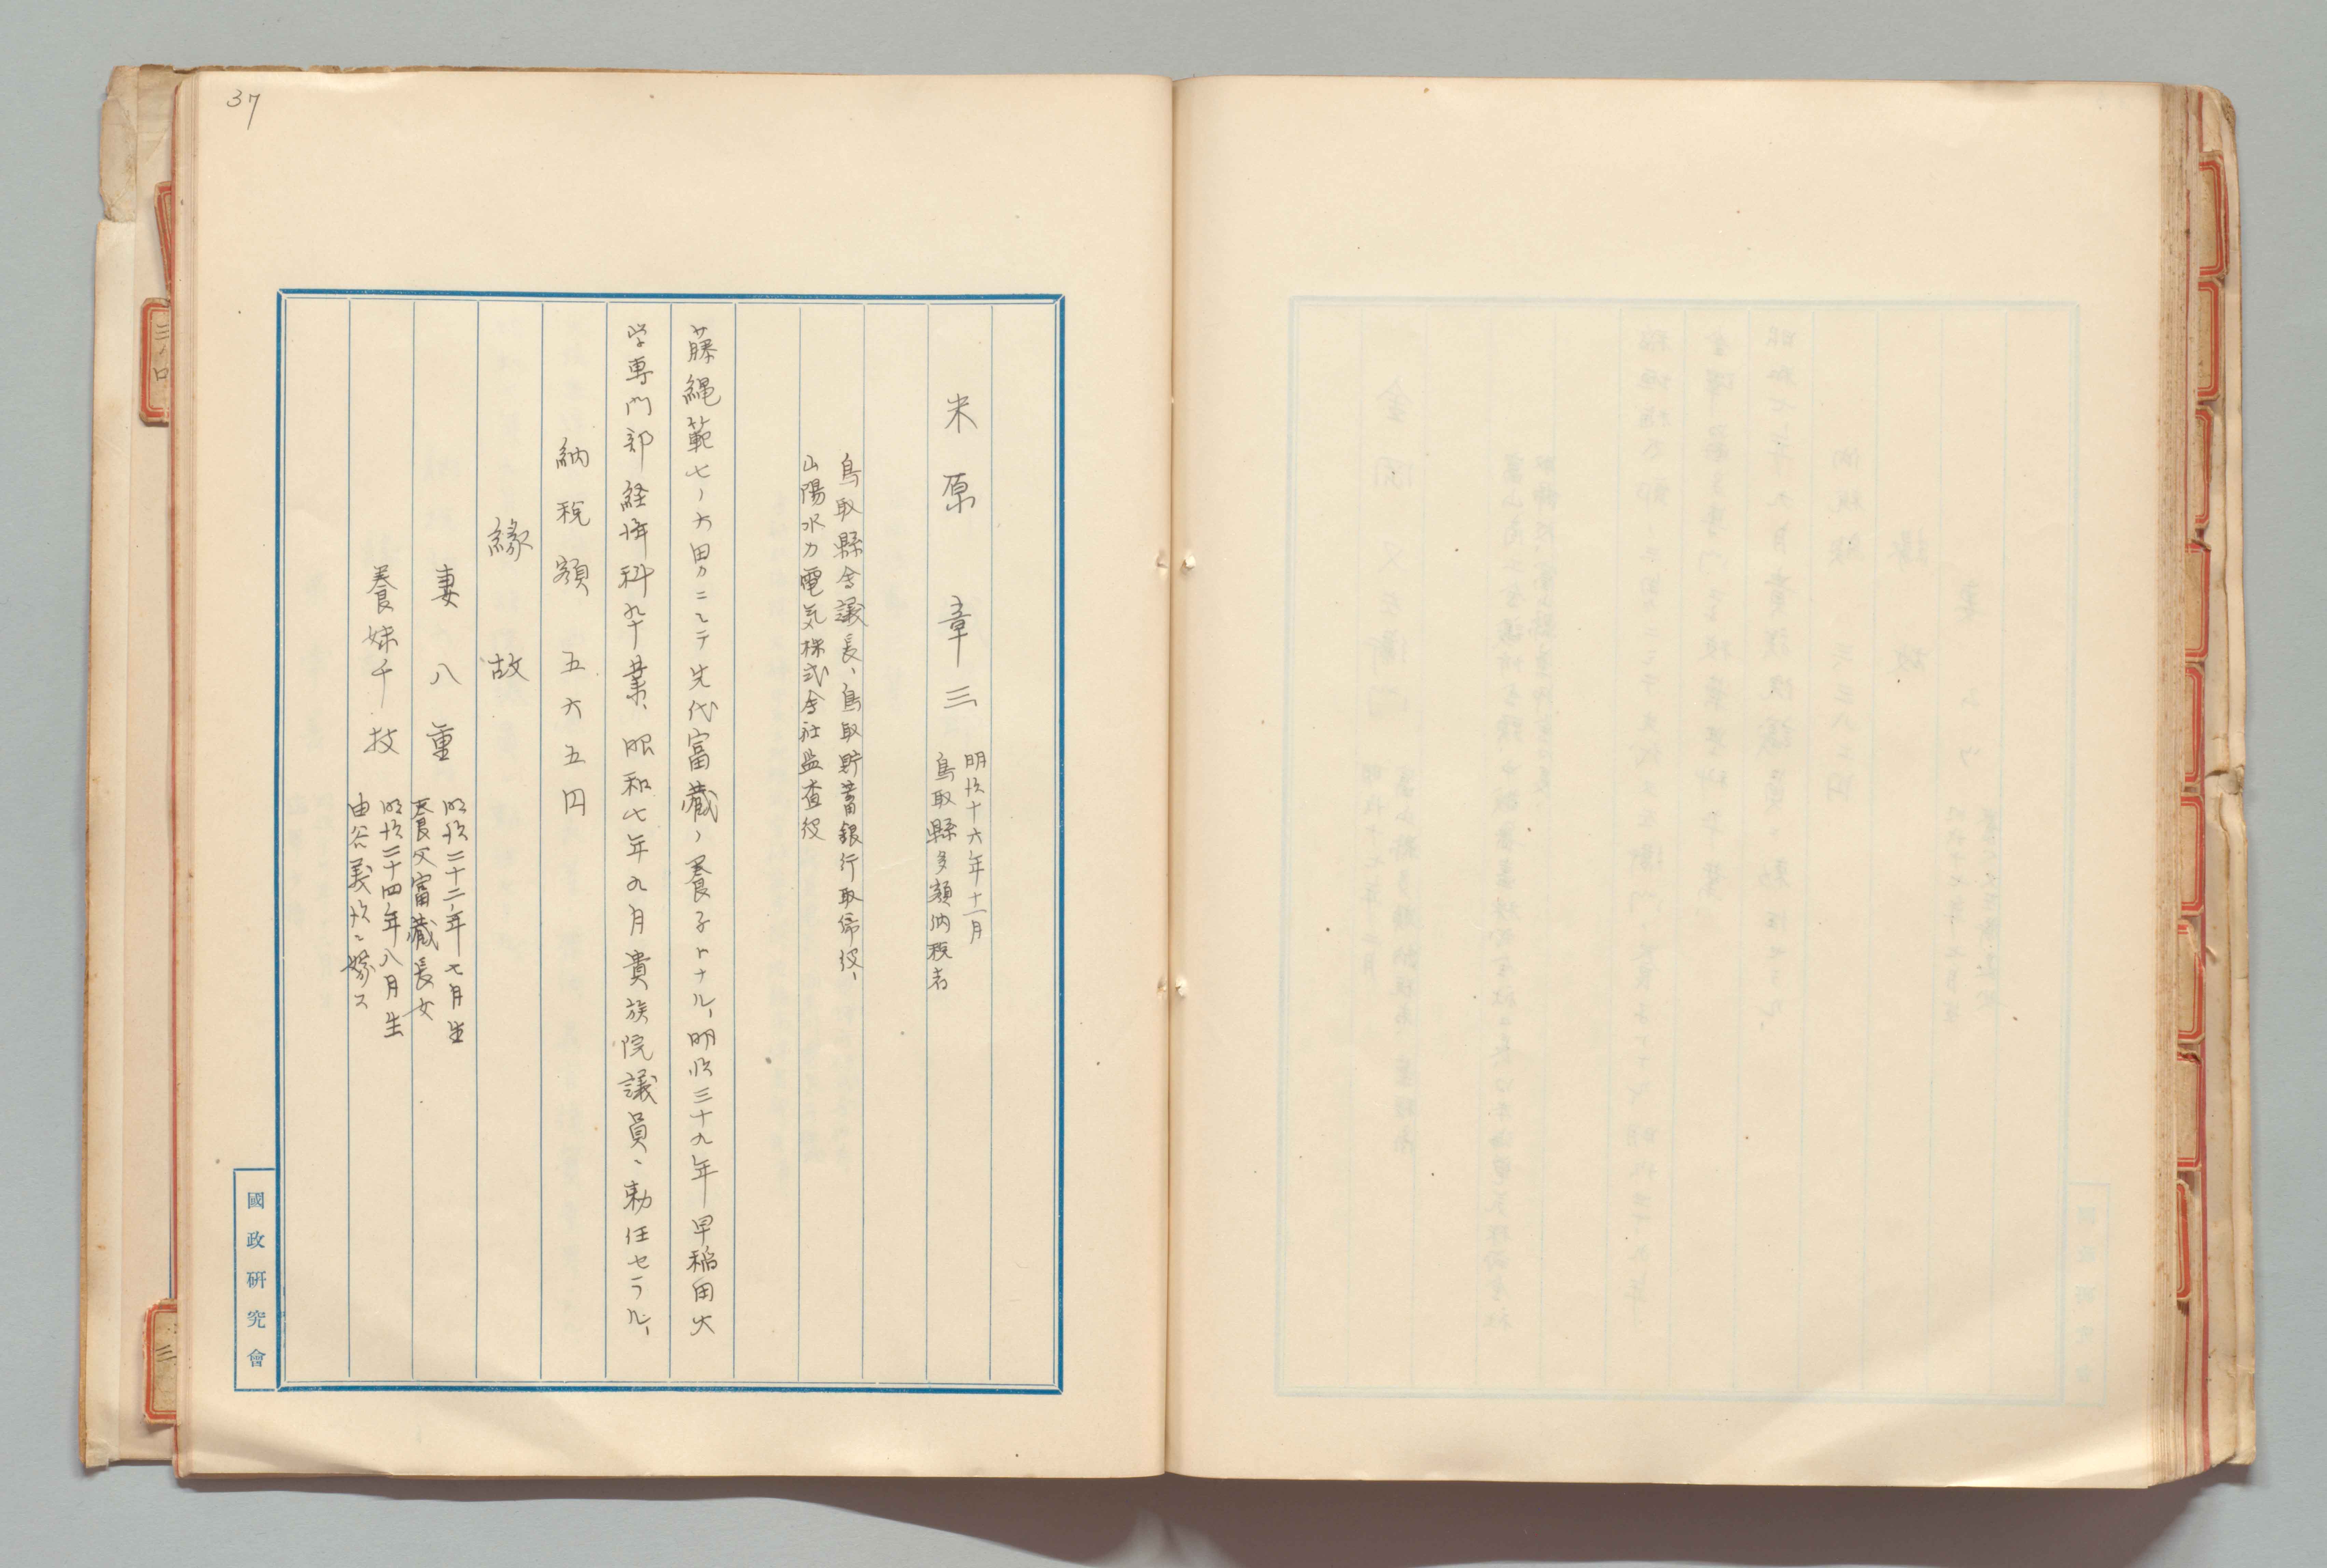 37
米原章三
明治十六年十一月
鳥取縣多額納税者
鳥取縣会議長、鳥取貯蓄銀行取締役、
山陽水力電気株式会社監査役
藤縄範七ノ六男ニシテ先代富蔵ノ養子トナル、明治三十九年早稲田大
学専門部経済科卆業、昭和七年九月貴族院議員ニ勅任セラル、
納税額 五六五五円
縁故
妻 八重
明治二十二年七月生
養父富蔵長女
養妹 千枝
明治二十四年八月生
由谷義治ニ嫁ス
國政研究會
三ノ口
三